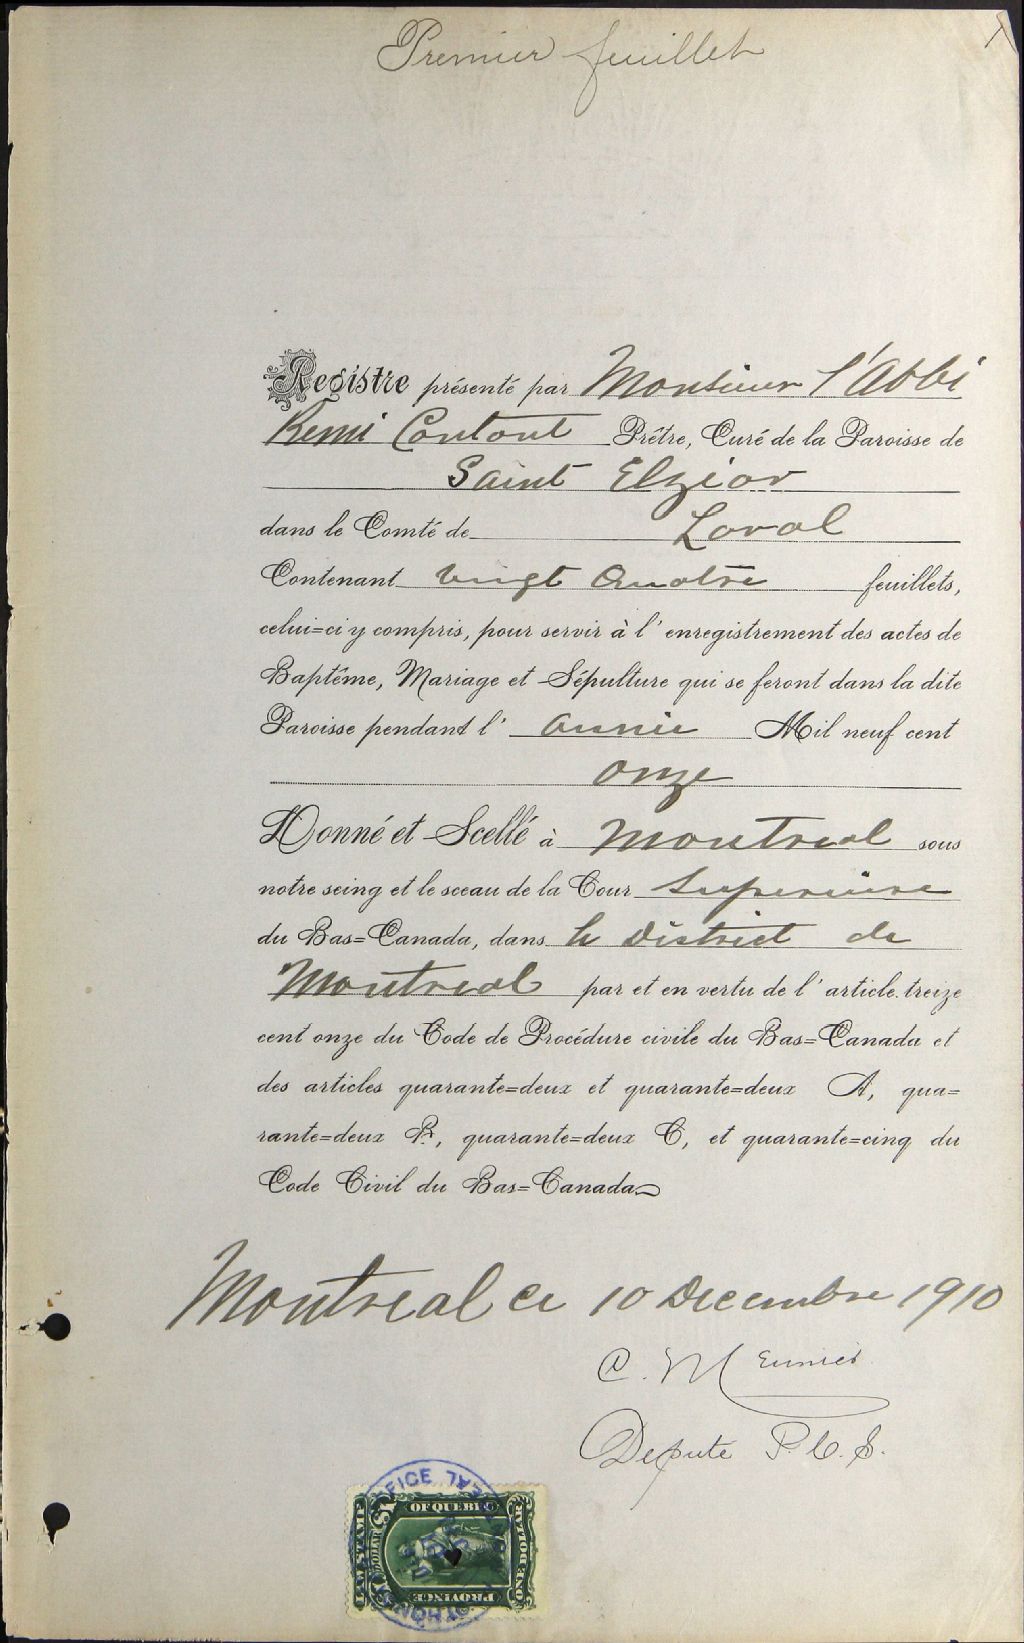 Premier feuillet
1
Registre présenté par Monsieur l'Abbé
Remi Contant Prêtre, Curé de la Paroisse de
Saint Elzéar
dans le Comté de Laval
Contenant vingt Quatre feuillets,
celui=ci y compris, pour servir à l'enregistrement des actes de
Baptême, Mariage et Sépulture qui se feront dans la dite
Paroisse pendant l'année Mil neuf cent
onze
Donné et Scellé à Montreal sous
notre seing et le sceau de la Cour Superieure
du Bas=Canada, dans le District de
Montreal par et en vertu de l'article treize
cent onze du Code de Procédure civile du Bas=Canada et
des articles quarante=deux et quarante=deux A, qua=
rante=deux B, quarante=deux C, et quarante=cinq du
Code Civil du Bas=Canada
Montreal ce 10 Decembre 1910
C. Meunier
Depute P. C. S.
OF QUEBEC
LAW STAMP
$1
DOLLAR
ONE DOLLAR
PROVINCE